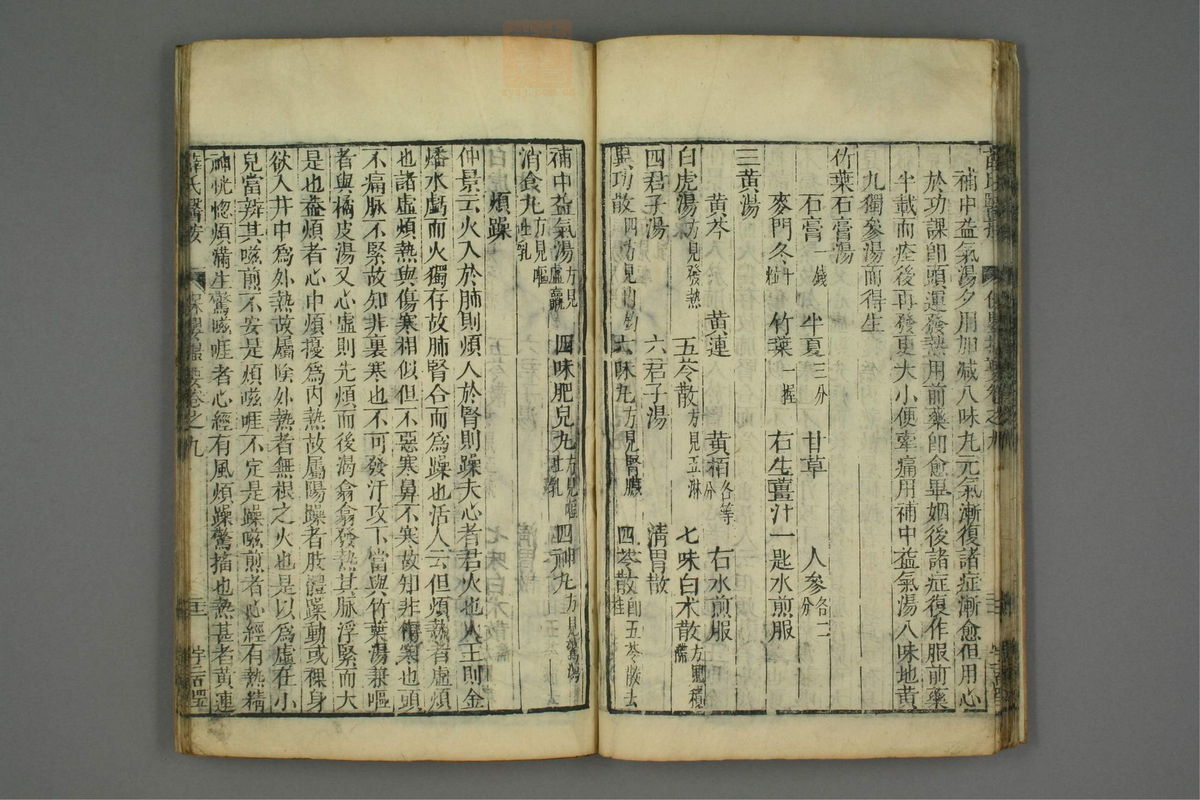 補中益氣湯夕用加減八味丸元氣漸復諸症漸愈但用心
於功課卽頭運發熱用前藥卽愈畢姻後諸症復作服前藥
半載而痊後再發更大小便牽痛用補中益氣湯八味地黃
丸獨參湯而得生
竹葉石膏湯
石膏一錢 半夏三分 甘草 人參各二分
麥門冬十粒 竹葉一握 右生薑汁一匙水煎服
三黃湯
黃芩 黃連 黃栢各等分 右水煎服
白虎湯方見發熱 五苓散方見五淋 七味白术散方見積滯
四君子湯 六君子湯 清胃散
異功散四方見內釣 六味丸方見腎臟 四苓散卽五苓散去桂
補中益氣湯方見虛羸 四味肥兒丸方見嘔吐乳 四神丸方見瀉
消食丸方見嘔吐乳
煩躁
仲景云火入於肺則煩入於腎則躁夫心者君火也火王則金
燔水虧而火獨存故肺腎合而爲躁也活人云但煩熱者虛煩
也諸虛煩熱與傷寒相似但不惡寒鼻不寒故知非傷寒也頭
不痛脉不緊故知非裏寒也不可發汗攻下當與竹葉湯兼嘔
者與橘皮湯又心虛則先煩而後渴翕翕發熱其脉浮緊而大
是也蓋煩者心中煩擾爲內熱故屬陽躁者肢體躁動或裸身
欲入井中爲外熱故屬陰外熱者無根之火也是以爲虛在小
兒當辨其嗞煎不安是煩嗞啀不定是躁嗞煎者心經有熱精
神恍惚煩滿生驚嗞啀者心經有風煩躁驚搐也熱甚者黃連
薛氏醫按 保嬰撮要卷之九